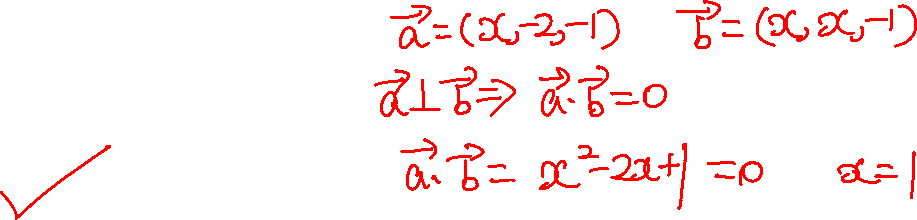 a⃗=(x,-2,-1) b⃗=(x,x,-1)
a⃗⊥b⃗⇒a⃗.b⃗=0
a⃗.b⃗=x²-2x+1=0 x=1